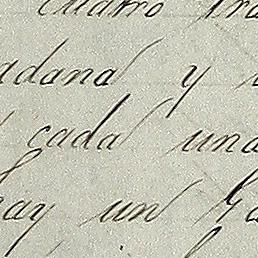 cuatro
adana y
cada una
hay un